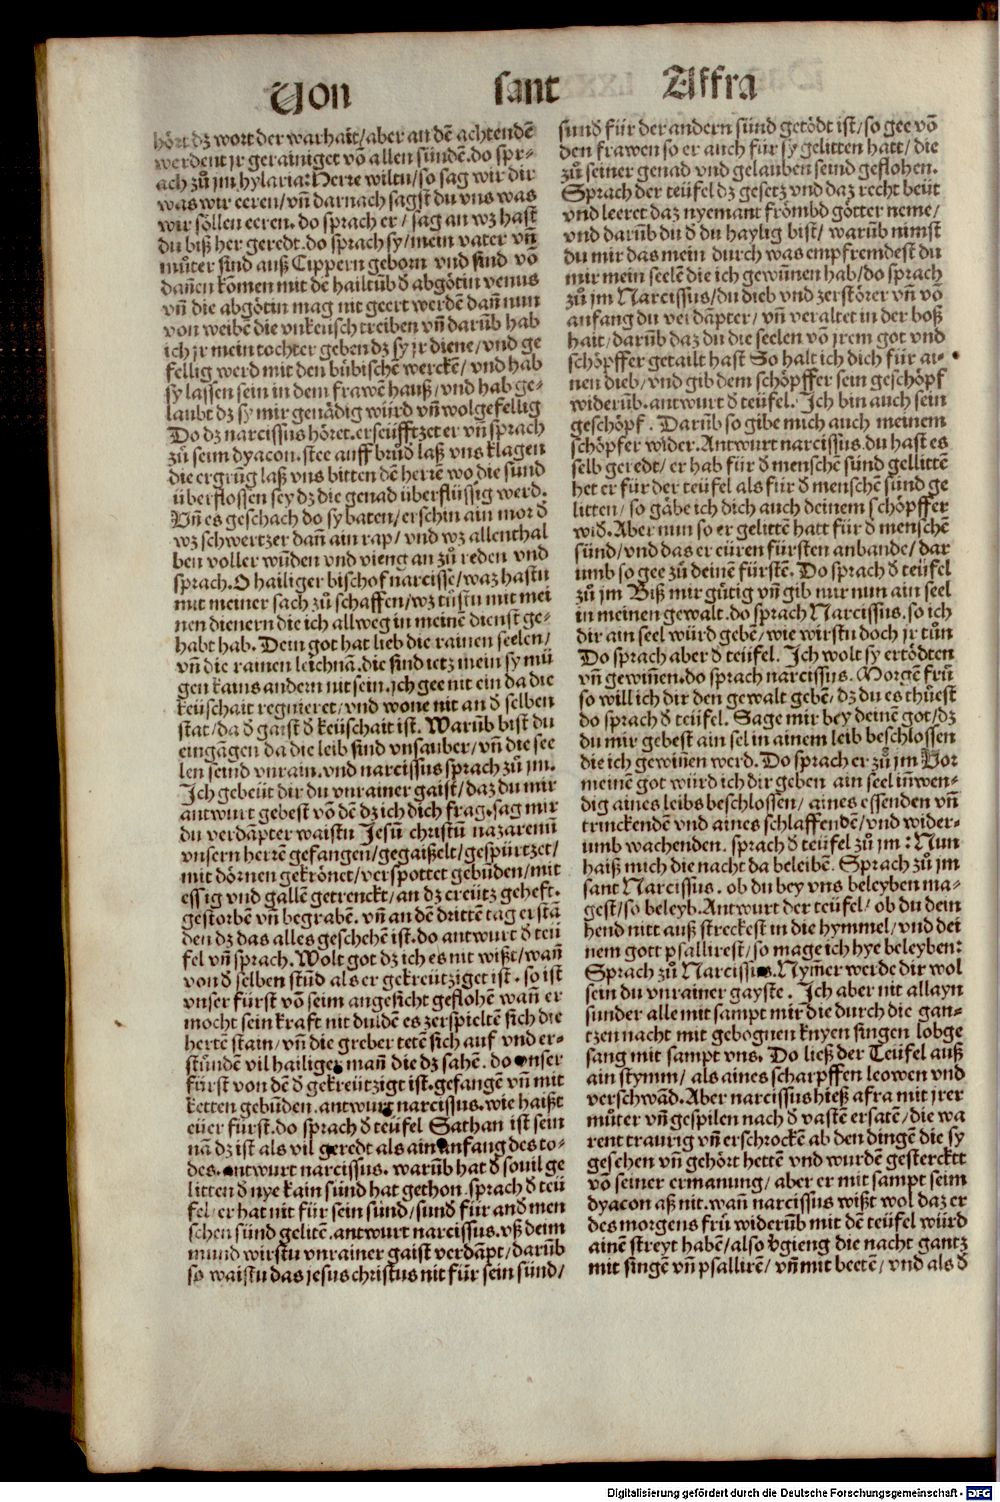 Von sant Affra
hört dz wort der warhait/aber an dē achtendē
werdent jr gerainiget vō allen sündē.do spr⸗
ach zů jm hylaria:Herre wiltu/so sag wir dir
was wir eeren/vn̄ darnach sagst du vns was
wir söllen eeren.do sprach er/sag an wz hast
du biß her geredt.do sprach sy/mein vater vn̄
můter sind auß Cippern geborn vnd sind vō
dan̄en komen mit dē hailtūb d abgötin venus
vn̄ die abgötin mag nit geert werdē dan̄ nun
von weibē die vnkeusch treiben vn̄ darūb hab
ich jr mein tochter geben dz sy jr diene/vnd ge
fellig werd mit den bübischē werckē/vnd hab
sy lassen sein in dem frawē hauß/vnd hab ge⸗
laubt dz sy mir genādig würd vn̄ wolgefellig
Do dz narcissus höret.erseüfftzet er vn̄ sprach
zů seim dyacon.stee auff brůd laß vns klagen
die ergrūg laß vns bitten dē herrē wo die sünd
überflossen sey dz die genad überflüssig werd.
Vn̄ es geschach do sy baten/erschin ain mor d
wz schwertzer dan̄ ain rap/vnd wz allenthal
ben voller wūden vnd vieng an zů reden vnd
sprach.O hailiger bischof narcisse/waz hastu
mit meiner sach zů schaffen/wz tůstu mit mei
nen dienern die ich allweg in meinē dienst ge⸗
habt hab.Dein got hat lieb die rainen seelen/
vn̄ die rainen leichnā.die sind ietz mein sy mü
gen kains andern nit sein.ich gee nit ein da die
keüschait regnieret/vnd wone nit an d selben
stat/da d gaist d keüschait ist.Warūb bist du
eingāgen da die leib sind vnsauber/vn̄ die see
len seind vnrain.vnd narcissus sprach zů jm.
Ich gebeüt dir du vnrainer gaist/daz du mir
antwurt gebest vō dē dz ich dich frag.sag mir
du verdāpter waistu Jesū christū nazarenū
vnsern herrē gefangen/gegaißelt/gespürtzet/
mit dörnen gekrönet/verspottet gebūden/mit
essig vnd gallē getrenckt/an dz creütz geheft.
gestorbē vn̄ begrabē.vn̄ an dē drittē tag erstā
den dz das alles geschehē ist.do antwurt d teü
fel vn̄ sprach.Wolt got dz ich es nit wißt/wan̄
von d selben stūd als er gekreütziget ist.so ist
vnser fürst vō seim angesicht geflohē wan̄ er
mocht sein kraft nit duldē es zerspieltē sich die
hertē stain/vn̄ die greber tetē sich auf vnd er⸗
stůnden vil hailiger man̄ die dz sahē.do vnser
fürst von dē d gekreützigt ist.gefangē vn̄ mit
ketten gebūden.antwurt narcissus.wie haißt
eüer fürst.do sprach d teüfel Sathan ist sein
nā dz ist als vil geredt als ain anfang des to⸗
des.antwurt narcissus.warūb hat d souil ge
litten d nye kain sünd hat gethon.sprach d teü
fel/er hat nit für sein sünd/sund für and men
schen sünd gelitē.antwurt narcissus.vß deim
mund wirstu vnrainer gaist verdāpt/darūb
so waistu das jesus christus nit für sein sünd/
sund für der andern sünd getödt ist/so gee vō
den frawen so er auch für sy gelitten hatt/die
zů seiner genad vnd gelauben seind geflohen.
Sprach der teüfel dz gesetz vnd daz recht beüt
vnd leeret daz nyemant frömbd götter neme/
vnd darūb du d du haylig bist/warūb nimst
du mir das mein durch was empfremdest du
mir mein seelē die ich gewūnen hab/do sprach
zů jm Narcissus/du dieb vnd zerstörer vn̄ vō
anfang du verdāpter/vn̄ veraltet in der boß
hait/darūb daz du die seelen vō jrem got vnd
schöpffer getailt hast So halt ich dich für ai⸗
nen dieb/vnd gib dem schöpffer sein geschöpf
widerūb.antwurt d teüfel. Ich bin auch sein
geschöpf. Darūb so gibe mich auch meinem
schöpfer wider.Antwurt narcissus.du hast es
selb geredt/er hab für d menschē sünd gellittē
het er für der teüfel als für d menschē sünd ge
litten/so gäbe ich dich auch deinem schöpffer
wid.Aber nun so er gelittē hatt für d menschē
sünd/vnd das er eüren fürsten anbande/dar
umb so gee zů deinē fürstē.Do sprach d teüfel
zů jm Biß mir gütig vn̄ gib mir nun ain seel
in meinen gewalt.do sprach Narcissus.so ich
dir ain seel würd gebē/wie wirstu doch jr tůn
Do sprach aber d teüfel. Ich wolt sy ertödten
vn̄ gewin̄en.do sprach narcissus. Morgē frů
so will ich dir den gewalt gebē/dz du es thüest
do sprach d teüfel. Sage mir bey deinē got/dz
du mir gebest ain sel in ainem leib beschlossen
die ich gewin̄en werd.Do sprach er zů jm Vor
meinē got würd ich dir geben ain seel in̄wen⸗
dig aines leibs beschlossen/aines essenden vn̄
trinckendē vnd aines schlaffendē/vnd wider⸗
umb wachenden. sprach d teüfel zů jm:Nun
haiß mich die nacht da beleibē. Sprach zů jm
sant Narcissus. ob du bey vns beleyben ma⸗
gest/so beleyb.Antwurt der teüfel/ob du dein
hend nitt auß streckest in die hymmel/vnd dei
nem gott psallirest/so mage ich hye beleyben:
Sprach zů Narcissus.Nym̄er werde dir wol
sein du vnrainer gayste. Ich aber nit allayn
sunder alle mit sampt mir die durch die gan⸗
tzen nacht mit gebognen knyen singen lobge
sang mit sampt vns. Do ließ der Teüfel auß
ain stymm/als aines scharpffen leowen vnd
verschwād.Aber narcissus hieß afra mit jrer
můter vn̄ gespilen nach d vastē ersatē/die wa
rent traurig vn̄ erschrockē ab den dingē die sy
gesehen vn̄ gehört hetten vnd wurdē gestercktt
vō seiner ermanung/aber er mit sampt seim
dyacon aß nit.wan̄ narcissus wißt wol daz er
des morgens frů widerūb mit dē teüfel würd
ainē streyt habē/also vgieng die nacht gantz
mit singē vn̄ psallirē/vn̄ mit beetē/vnd als d
Digitalisierung gefördert durch die Deutsche Forschungsgemeinschaft - DFG